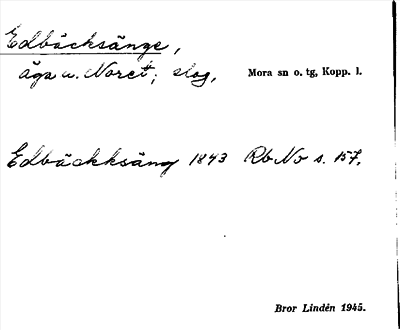 Edbäcksänge,
äga u. Noret; slog, Mora sn o. tg, Kopp. l.
Edbäckksäng 1843 Rb No s. 157.
Bror Lindén 1945.